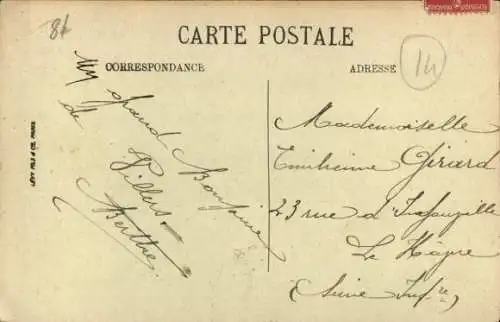 84
CARTE POSTALE
CORRESPONDANCE
ADRESSE
14
Un grand Bonjour
de
Villers.
Berthe.
LÉVY FILS & CIE, PARIS
Mademoiselle
Girard
23 rue d'Ingouville
Le Havre
(Seine Infre)